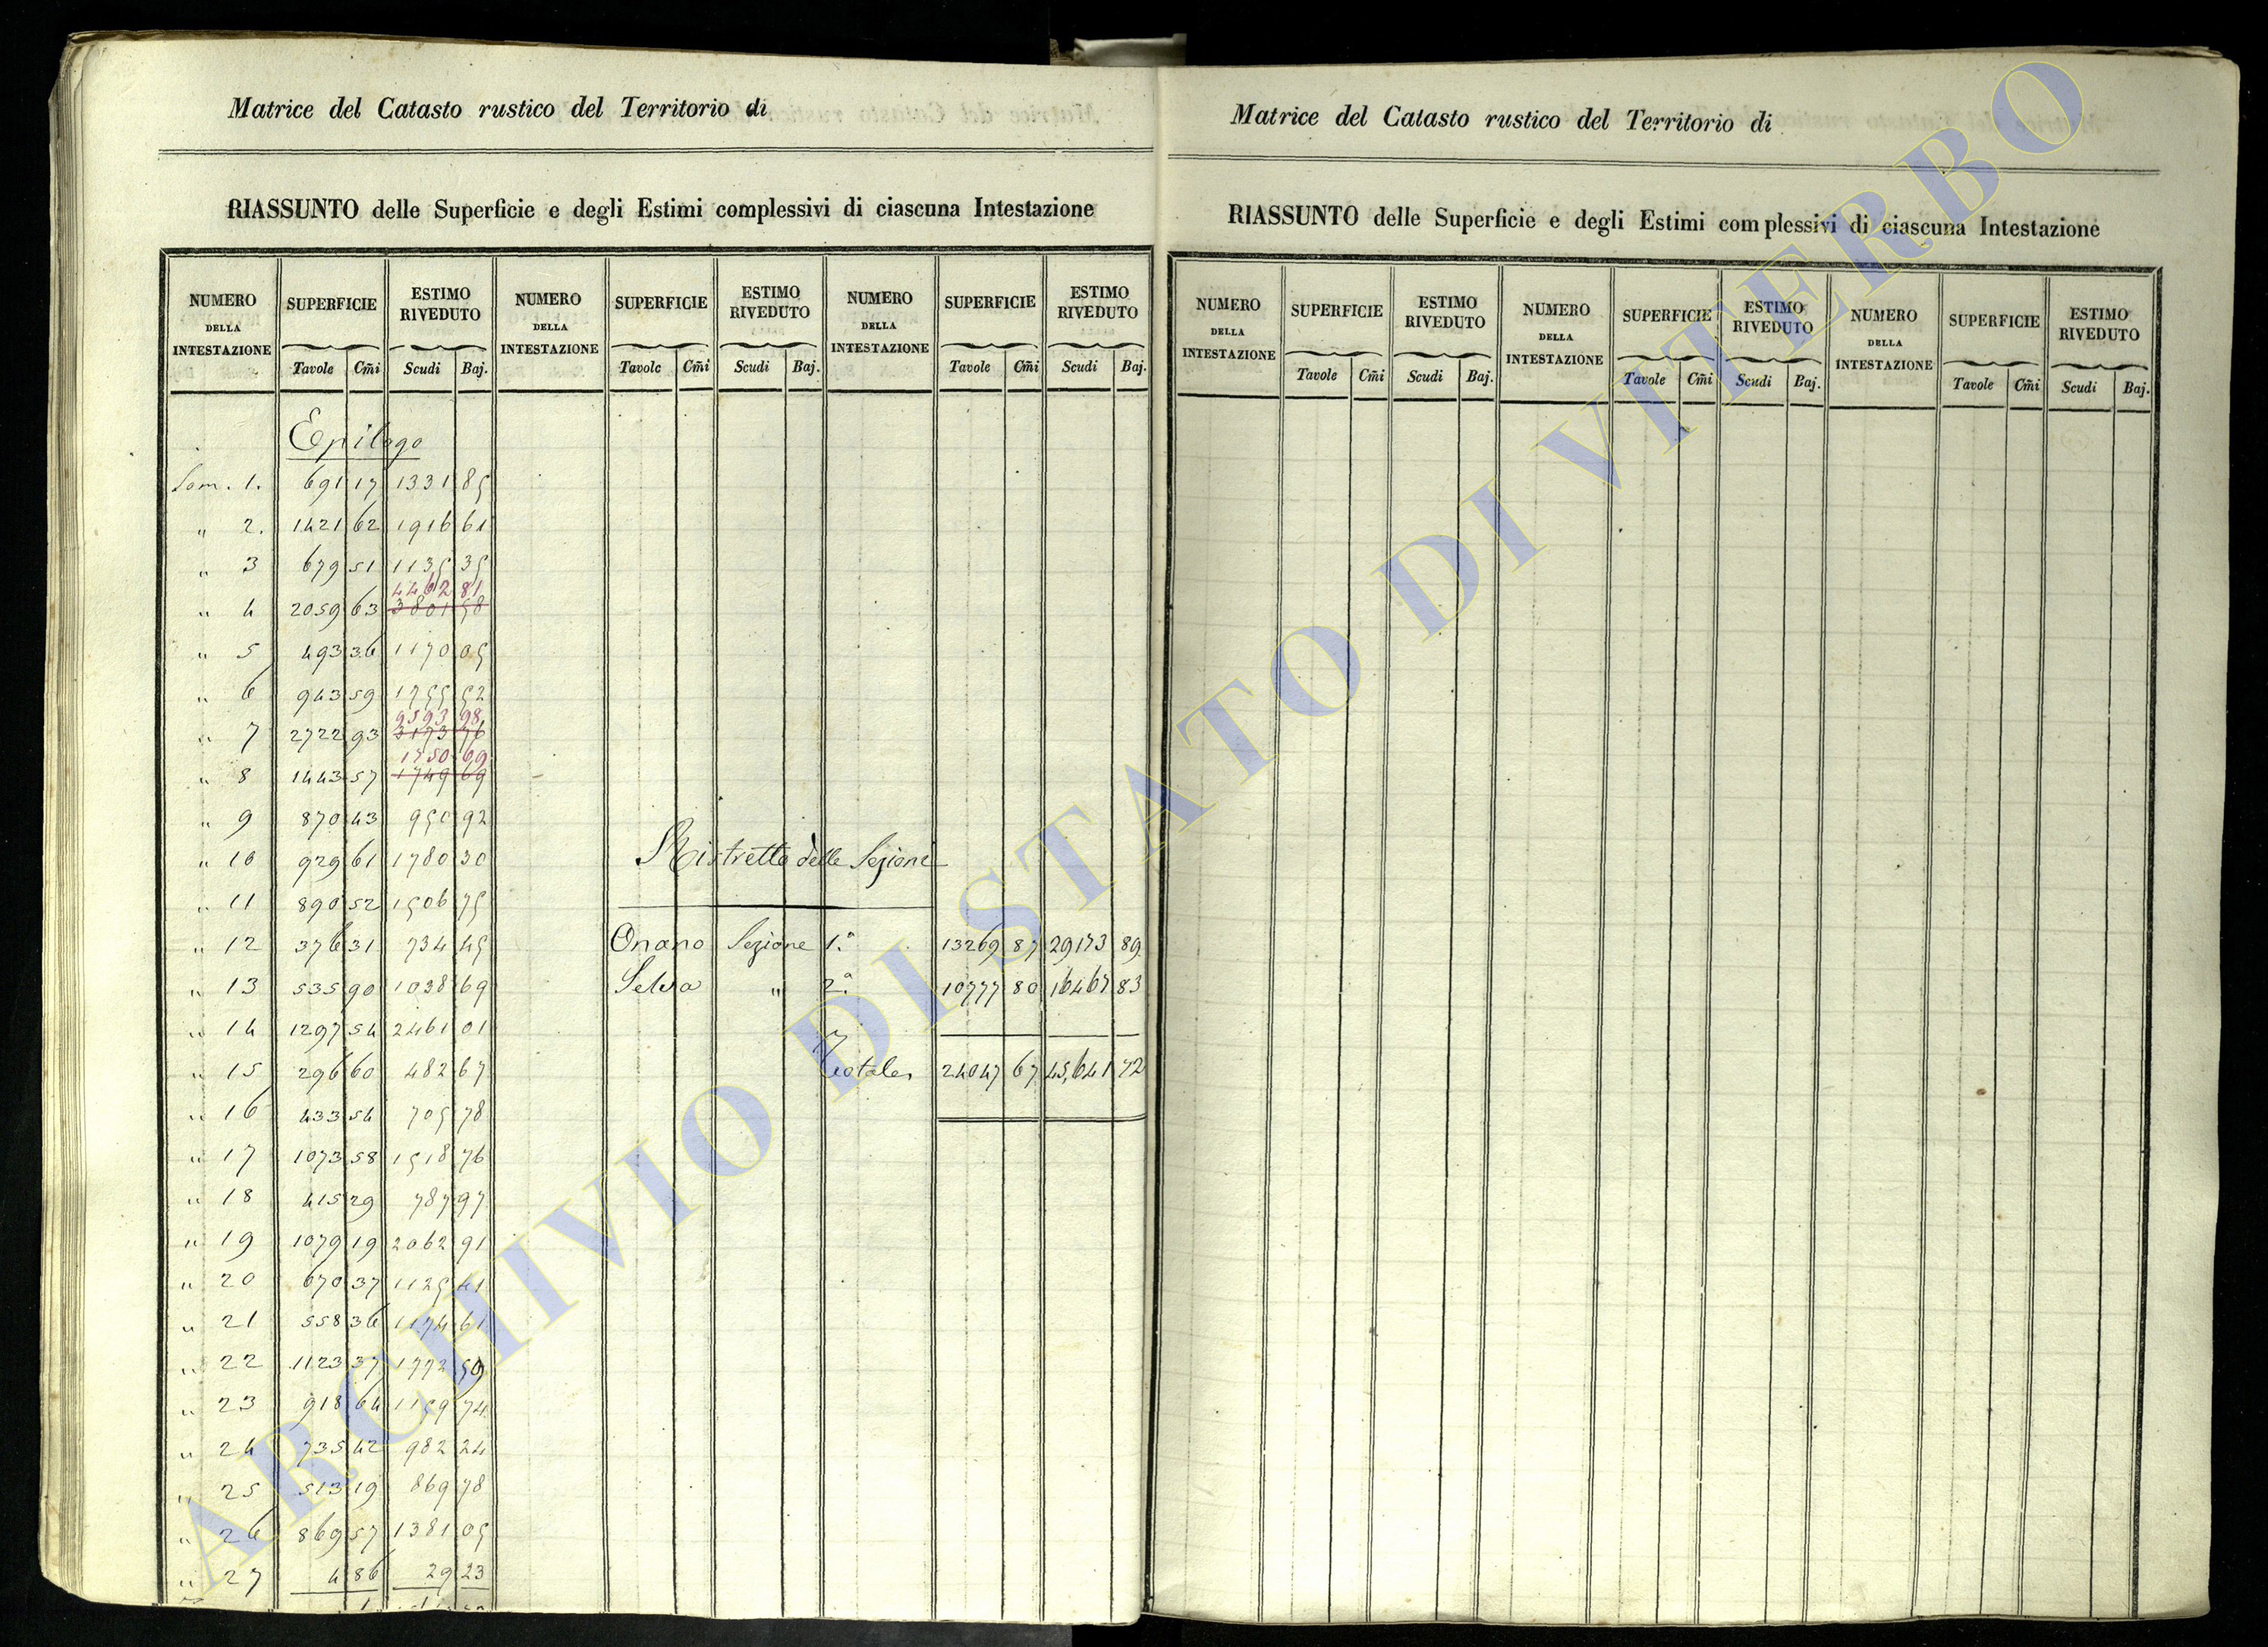 Matrice del Catasto rustico del Territorio di
RIASSUNTO delle Superficie e degli Estimi complessivi di ciascuna Intestazione
NUMERO DELLA INTESTAZIONE SUPERFICIE ESTIMO RIVEDUTO NUMERO DELLA INTESTAZIONE SUPERFICIE ESTIMO RIVEDUTO NUMERO DELLA INTESTAZIONE SUPERFICIE ESTIMO RIVEDUTO
Tavole Cm̃i Scudi Baj. Tavole Cm̃i Scudi Baj. Tavole Cm̃i Scudi Baj.
Epilogo
Som. 1. 691 17 1331 85
" 2. 1421 62 1916 61
" 3 679 51 1135 35
4462 81
" 4 2059 63 3801 58
" 5 493 36 1170 05
" 6 943 59 1755 52
9593 98
" 7 2722 93 3173 76
1750 69
" 8 1443 57 1749 69
" 9 870 43 950 92
" 10 929 61 1780 30
" 11 890 52 1506 75
" 12 376 31 734 45
" 13 535 90 1038 69
" 14 1297 54 2461 01
" 15 296 60 482 67
" 16 433 54 705 78
" 17 1073 58 1518 76
" 18 415 29 787 97
" 19 1079 19 2062 91
" 20 670 37 1125 41
" 21 558 36 1174 61
" 22 1123 37 1772 50
" 23 918 64 1159 74
" 24 735 42 982 24
" 25 513 19 869 78
" 26 869 57 1381 05
" 27 4 86 29 23
Ristretto delle Sezione
Onano Sezione 1.ª 13269 87 29173 89
Selva " 2.ª 10777 80 16467 83
Totale 24047 67 45,641 72
Matrice del Catasto rustico del Territorio di
RIASSUNTO delle Superficie e degli Estimi complessivi di ciascuna Intestazione
NUMERO DELLA INTESTAZIONE SUPERFICIE ESTIMO RIVEDUTO NUMERO DELLA INTESTAZIONE SUPERFICIE ESTIMO RIVEDUTO NUMERO DELLA INTESTAZIONE SUPERFICIE ESTIMO RIVEDUTO
Tavole Cm̃i Scudi Baj. Tavole Cm̃i Scudi Baj. Tavole Cm̃i Scudi Baj.
ARCHIVIO DI STATO DI VITERBO